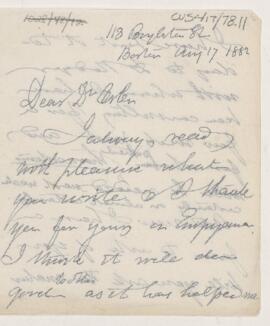 CUS417/78.11
113 Boylston St
Boston Aug 17 1882
Dear Dr Osler
I always read
with pleasure what
you write & I thank
you for yours on Empyema.
I think it will do
good to others as it has helped me